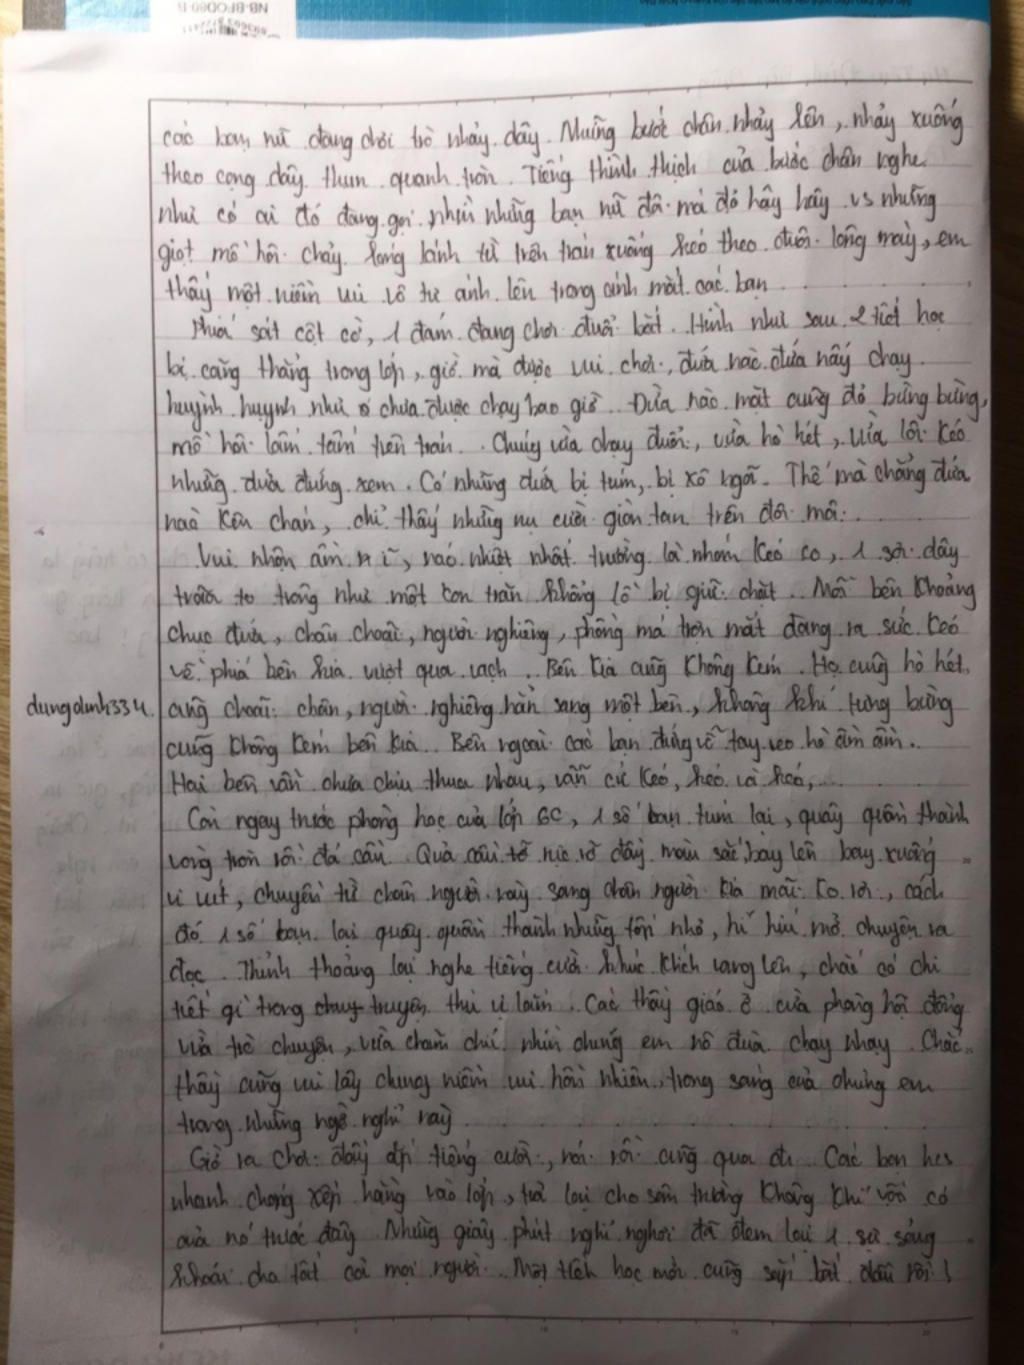 NB-BFOD60-B
các bạn nữ đang chơi trò nhảy dây. Những bước chân nhảy lên, nhảy xuống
theo cọng dây thun quanh tròn. Tiếng thình thịch của bước chân nghe
như có ai đó đang gọi. nhìn những bạn nữ đôi má đỏ hây hây vs những
giọt mồ hôi chảy long lanh từ trên trán xuống kéo theo đuôi lông mày, em
thấy một niềm vui vô tư ánh lên trong ánh mắt các bạn
Phía sát cột cờ, 1 đám đang chơi đuổi bắt. Hình như sau 2 tiết học
bị căng thẳng trong lớp, giờ mà được vui chơi, đứa nào đứa nấy chạy
huỳnh huỵnh như chưa được chạy bao giờ. Đứa nào mặt cũng đỏ bừng bừng,
mồ hôi lấm tấm trên trán. Chúng vừa chạy đuổi, vừa hò hét, vừa lôi kéo
những đứa đứng xem. Có những đứa bị túm, bị xô ngã. Thế mà chẳng đứa
nào kêu chán, chỉ thấy những nụ cười giòn tan trên đôi môi.
Vui nhộn ầm ĩ, náo nhiệt nhất trường là nhóm kéo co, 1 sợi dây
to trông như một con trăn khổng lồ bị giữ chặt. Mỗi bên khoảng
chục đứa, chân choãi, người nghiêng, phồng má trợn mắt đang ra sức kéo
về phía bên kia vượt qua vạch. Bên kia cũng không kém. Họ cũng hò hét,
dungdinh334. cũng choãi chân, người nghiêng hẳn sang một bên, không khí tưng bừng
cũng không kém bên kia. Bên ngoài các bạn đứng vỗ tay reo hò ầm ầm.
Hai bên vẫn chưa chịu thua nhau, vẫn cứ kéo, kéo và kéo,...
Còn ngay trước phòng học của lớp 6C, 1 số bạn tụm lại, quây quần thành
vòng tròn rồi đá cầu. Quả cầu rực rỡ đầy màu sắc bay lên bay xuống
vi vút, chuyền từ chân người này sang chân người kia mãi ko rơi, cách
đó 1 số bạn lại quây quần thành những tốp nhỏ, hí húi mở chuyện ra
đọc. Thỉnh thoảng lại nghe tiếng cười khúc khích vang lên, chắc có chi
tiết gì trong truyện thú vị lắm. Các thầy giáo ở cửa phòng hội đồng
vừa trò chuyện, vừa chăm chú nhìn chúng em nô đùa chạy nhảy. Chắc
thầy cũng vui lây chung niềm vui hồn nhiên, trong sáng của chúng em
trong những ngỳ nghỉ này
Giờ ra chơi đầy ắp tiếng cười, nói rồi cũng qua đi. Các bạn hcs
nhanh chóng xếp hàng vào lớp, trả lại cho sân trường không khí vốn có
của nó trước đây. Những giây phút nghỉ ngơi đã đem lại 1 sự sảng
khoái cho tất cả mọi người. Một tiết học mới cũng sắp bắt đầu rồi!